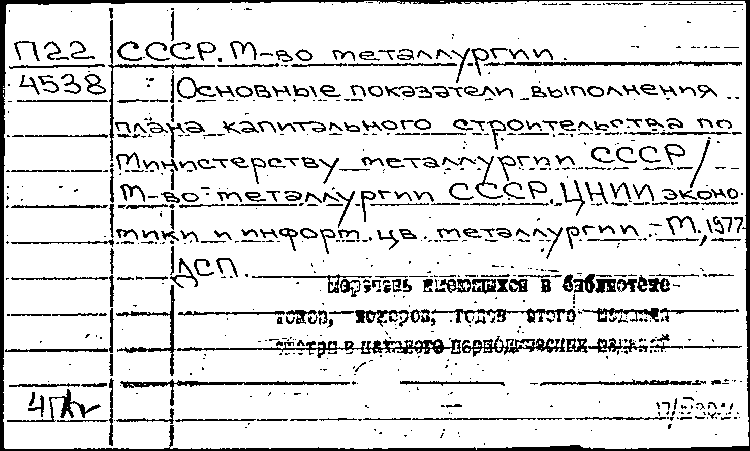 П22 СССР. М-во металлургии.
4538 Основные показатели выполнения
плана капитального строительства по
Министерству металлургии СССР/
М-во металлургии СССР. ЦНИИ эконо
тики и информ. цв. металлургии. - М., 1977
ДСП.
Перечень имеющихся в библиотеке
томов, номеров, годов этого издания
смотри в каталоге периодических изданий